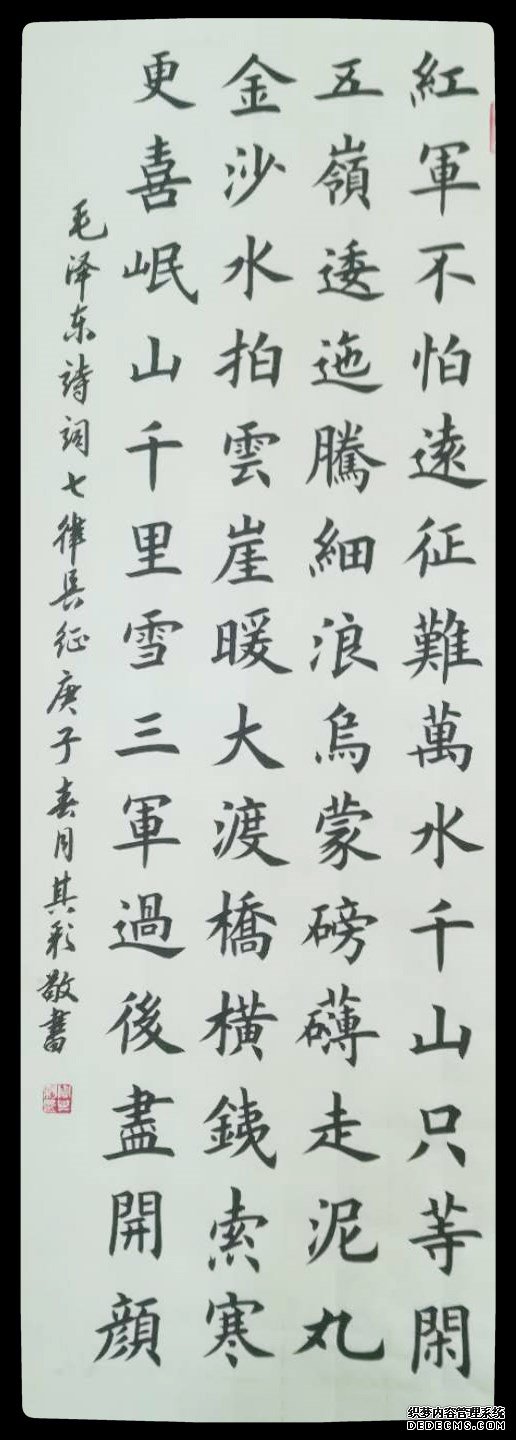 紅軍不怕遠征難萬水千山只等閑
五嶺逶迤騰細浪烏蒙磅礴走泥丸
金沙水拍雲崖暖大渡橋橫鐵索寒
更喜岷山千里雪三軍過後盡開顔
毛泽东詩詞七律長征庚子春月其彩敬書
织梦内容管理系统
DEDECMS.COM